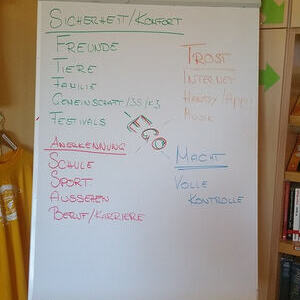 SICHERHEIT/KONFORT
FREUNDE
TIERE
FAMILIE
GEMEINSCHAFT/JS/KJ
FESTIVALS
TROST
INTERNET
HANDY/APPS
MUSIK
EGO
ANERKENNUNG
SCHULE
SPORT
AUSSEHEN
BERUF/KARRIERE
MACHT
VOLLE
KONTROLLE